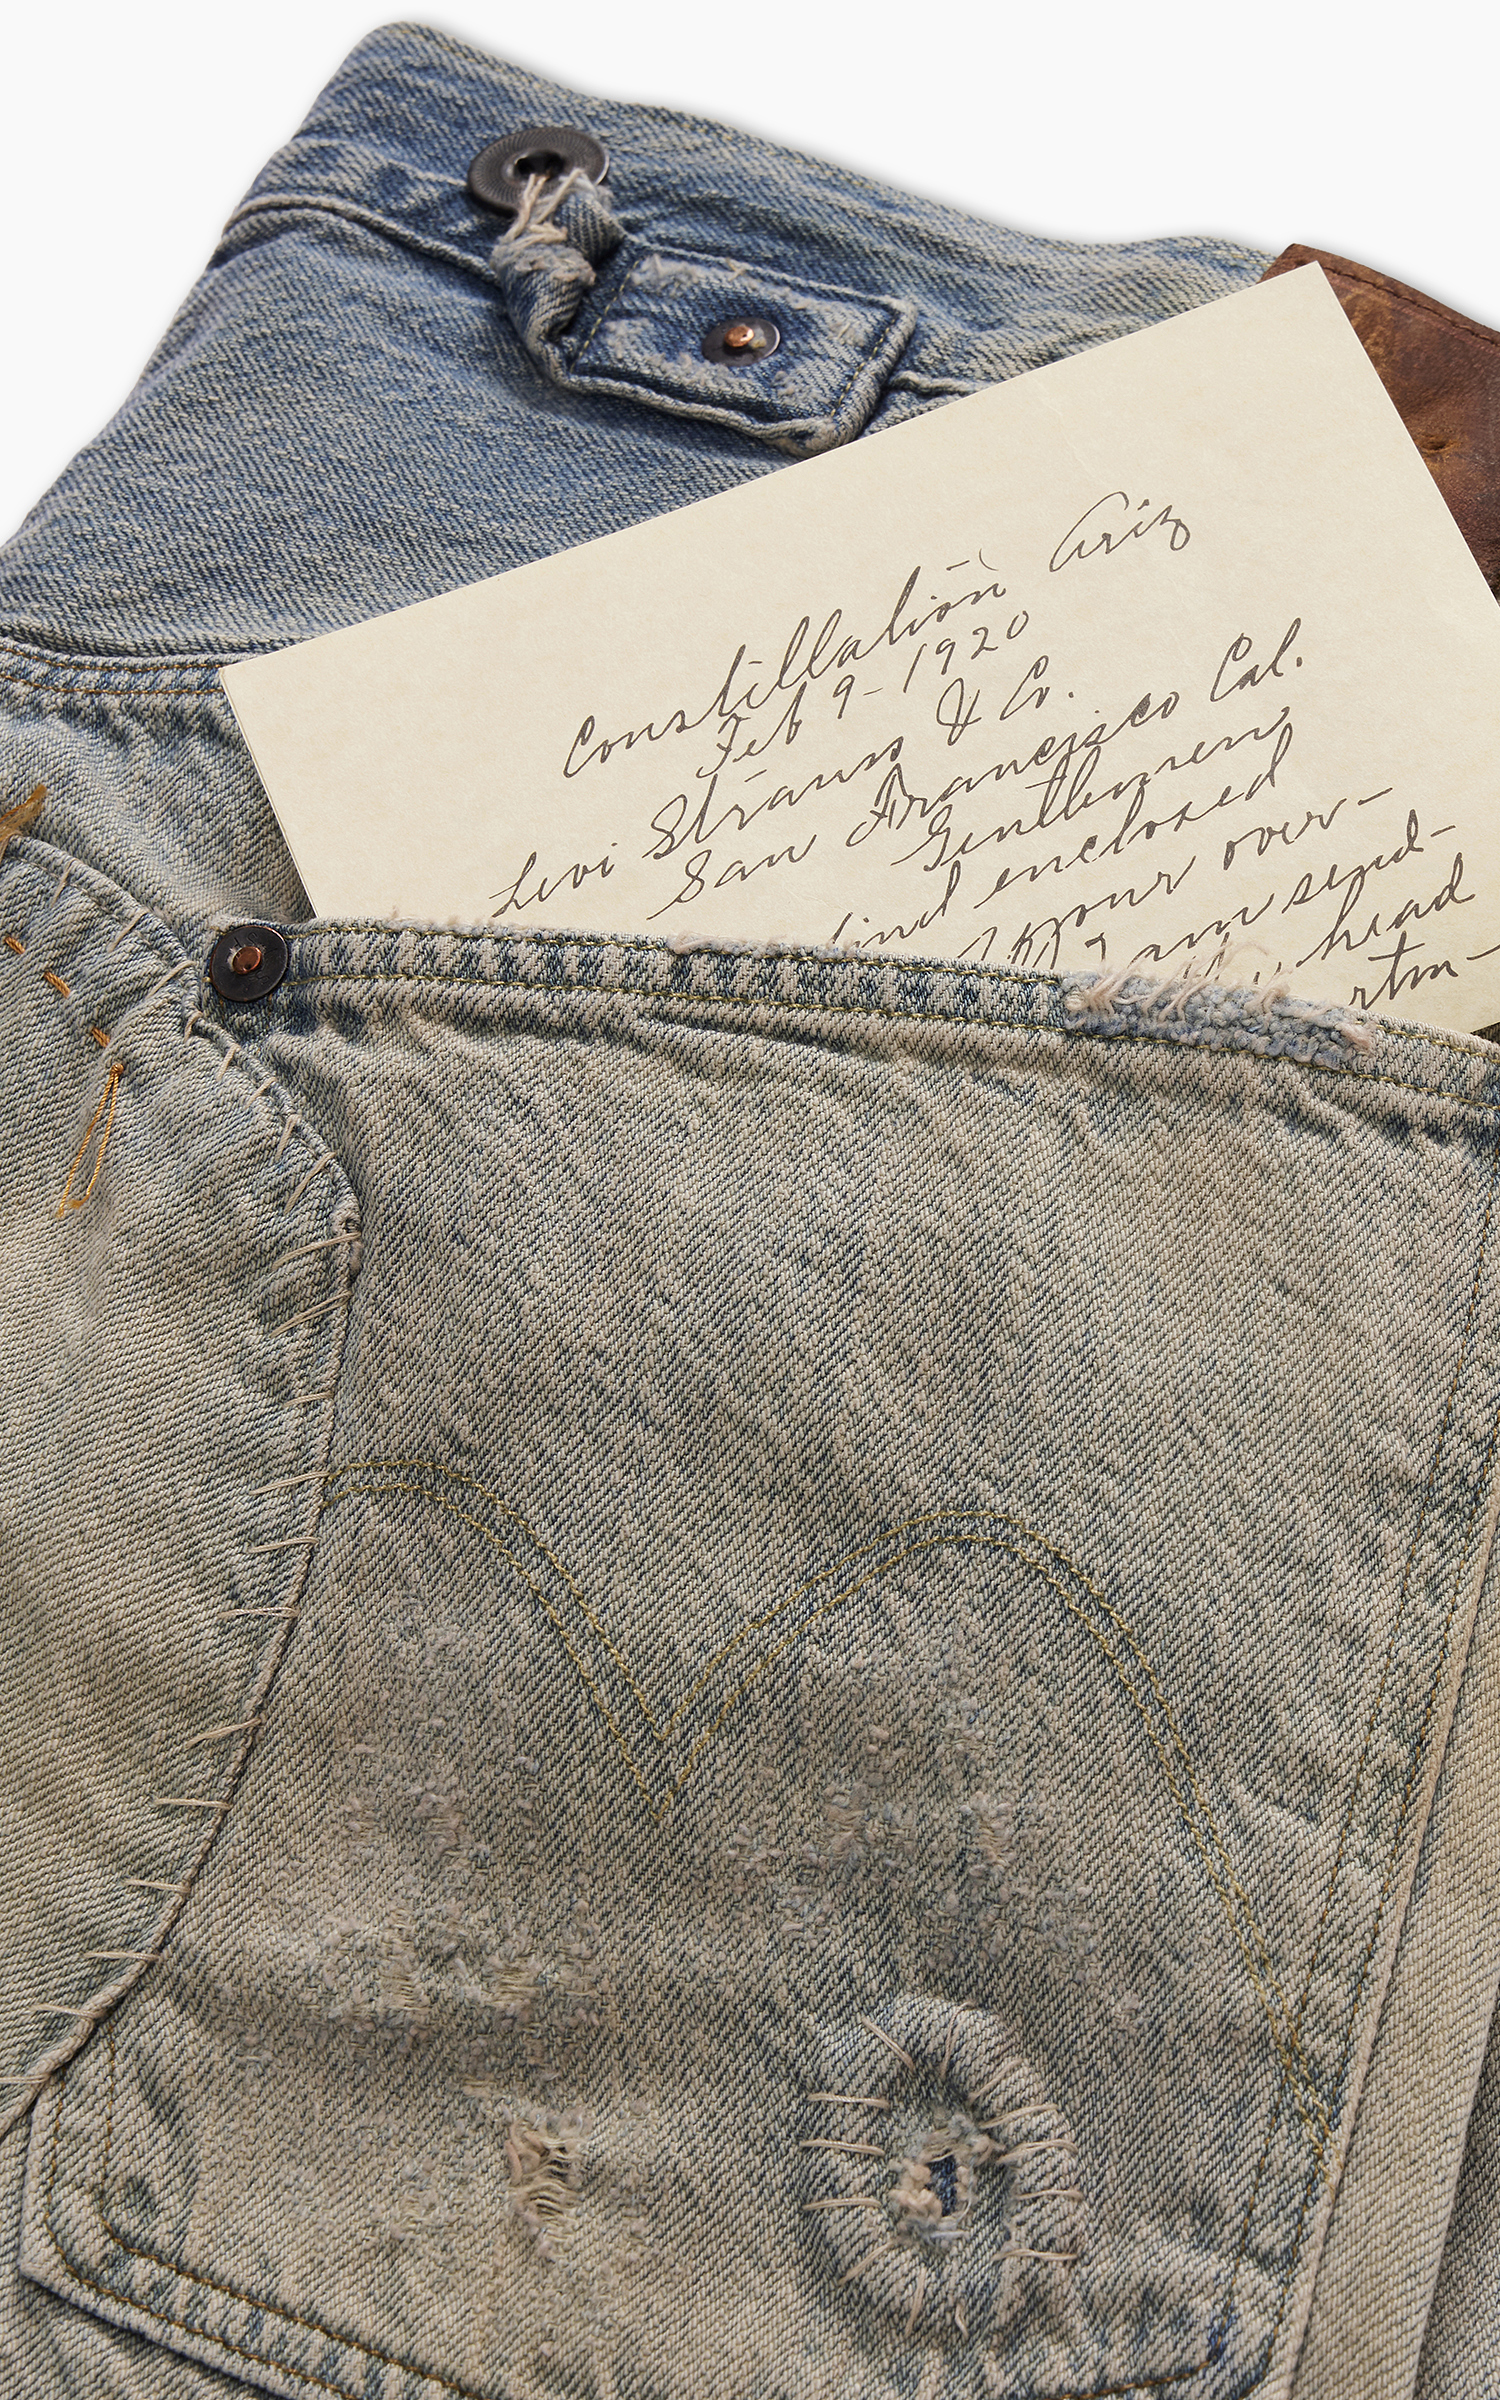 Constillation Ariz
Feb 9-1920
Levi Strauss & Co.
San Francisco Cal.
Gentlemen
find enclosed
your over-
I am send-
head